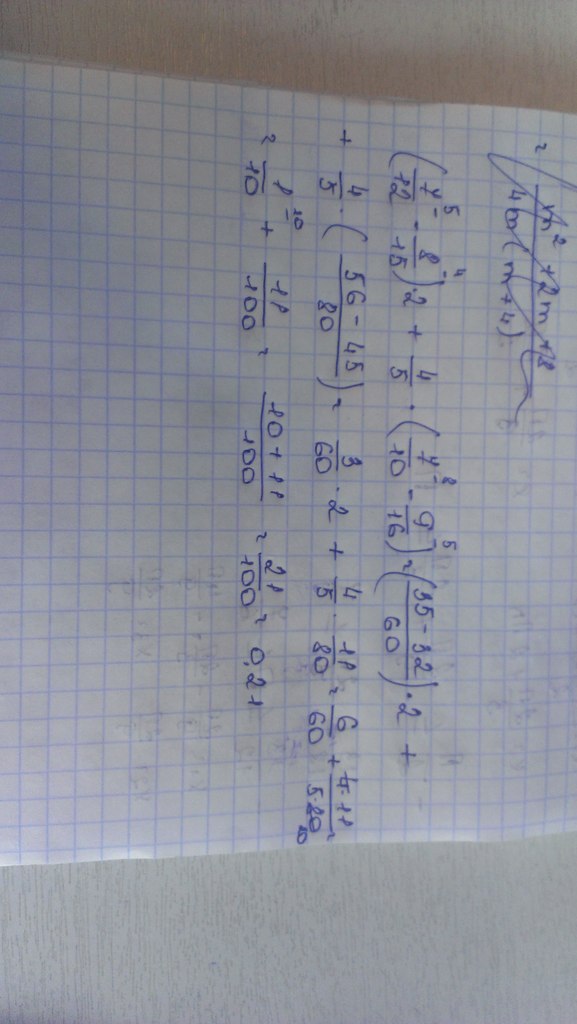 = m² + 2m + 8 / 4m(m+4)
(7/12 ⁵⁻ - 8/15 ⁻⁴)·2 + 4/5 · (7/10 ⁸⁻ - 9/16 ⁵) = (35-32/60)·2 +
+ 4/5 · (56-45/80) = 3/60 · 2 + 4/5 · 11/80 = 6/60 + 4·11/5·80 ₂₀ =
= 1/10 ¹⁰⁻ + 11/100 = 10+11/100 = 21/100 = 0,21